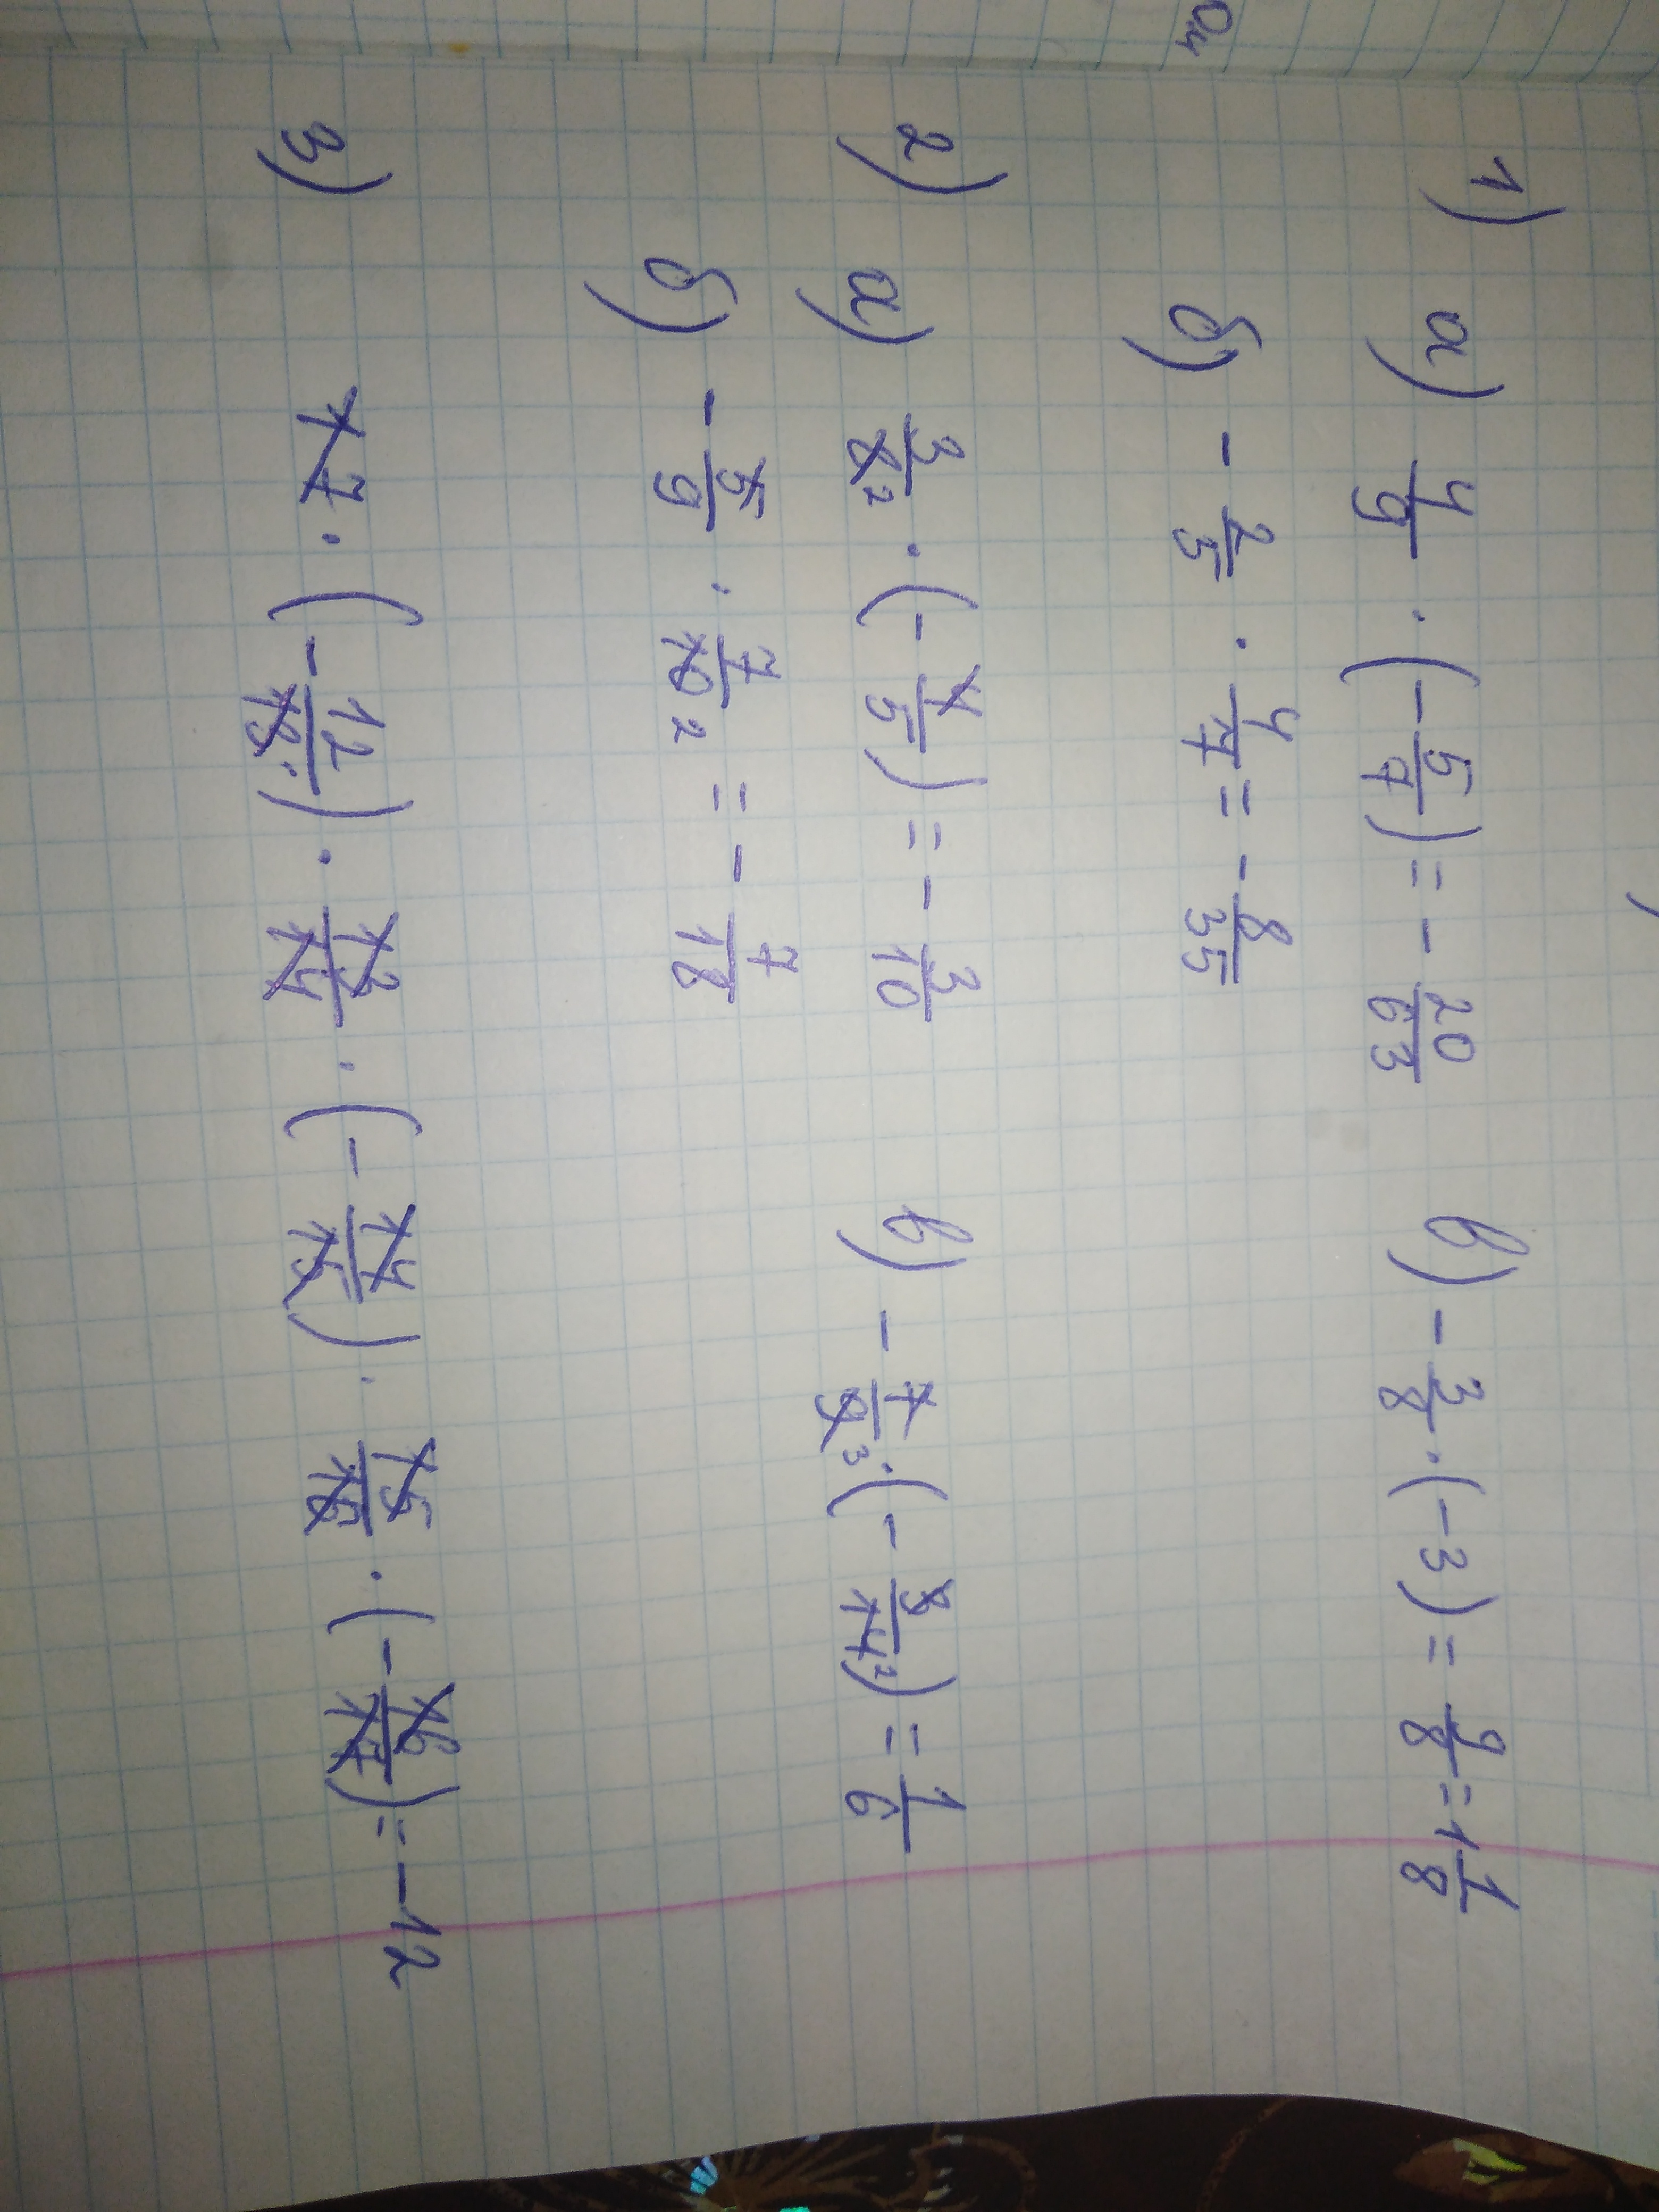 1) а) 4/9 · (- 5/7) = - 20/63 в) - 3/8 · (-3) = 9/8 = 1 1/8
б) - 2/5 · 4/7 = - 8/35
2) а) 3/8 2 · (- 4/5) = - 3/10 в) - 7/9 3 · (- 3/14 2) = 1/6
б) - 5/9 · 7/10 2 = - 7/18
3) 17 · (- 12/13) · 13/14 · (- 14/15) · 15/16 · (- 16/17) = -12